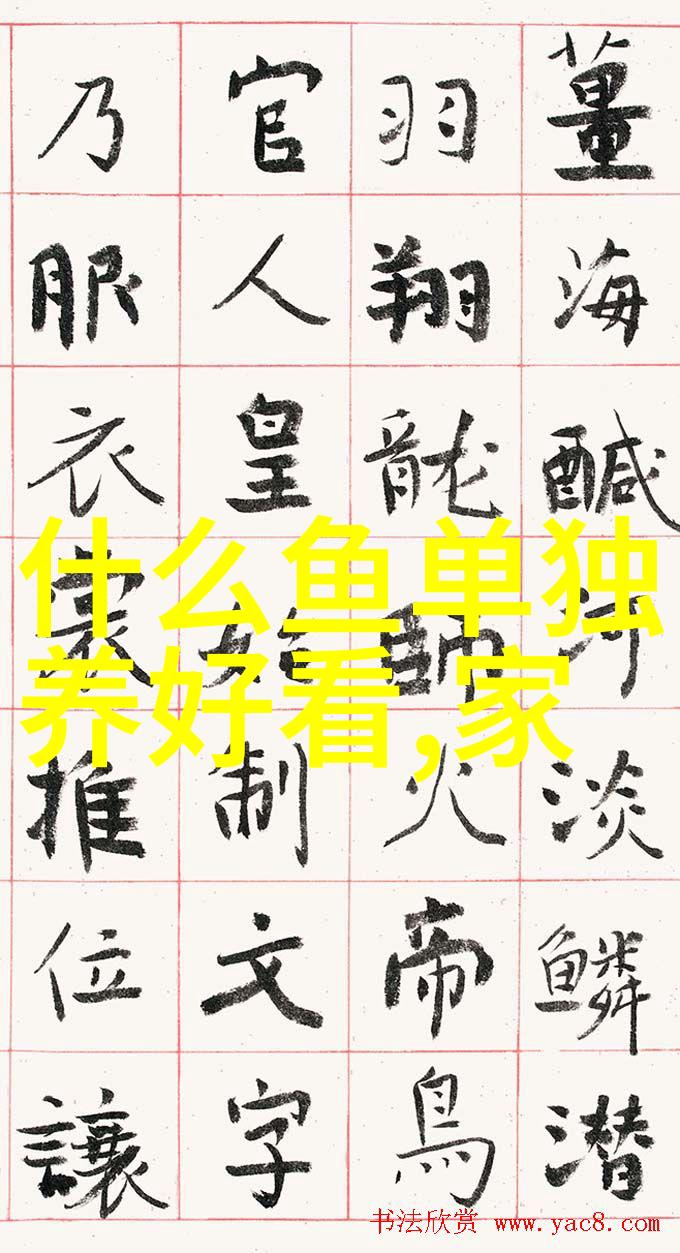 薑海醎河淡鱗潛
羽翔龍師火帝鳥
官人皇始制文字
乃服衣裳推位讓
什么鱼单独
养好看,家
书法欣赏 www.yac8.com